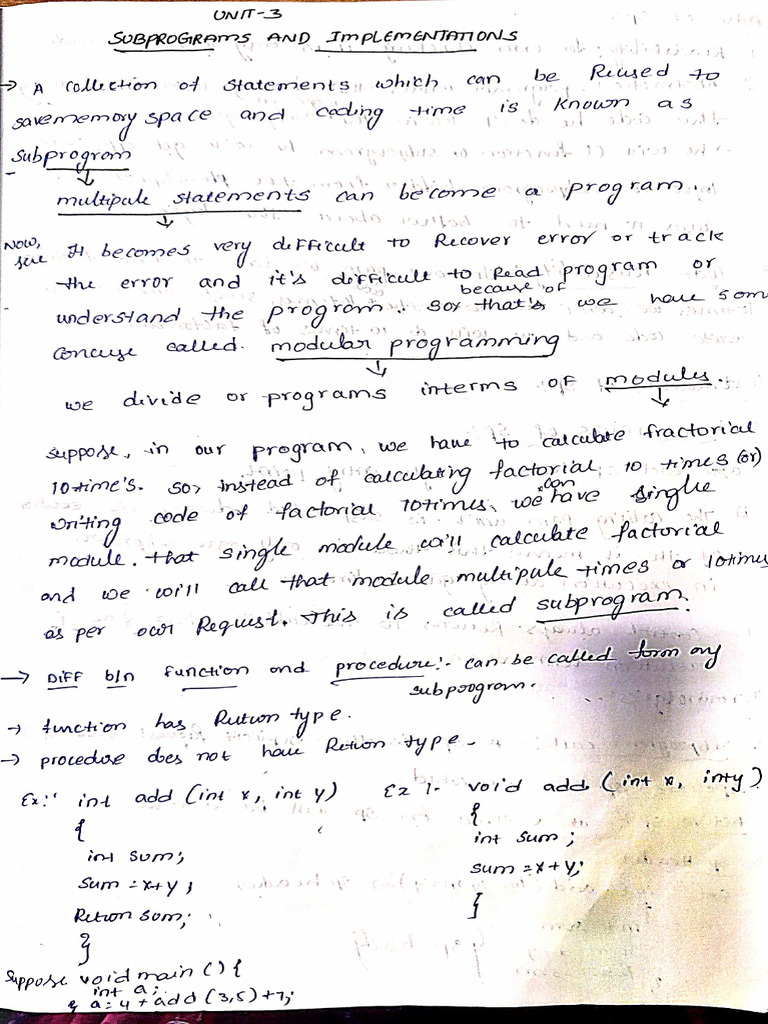 UNIT-3
SUBPROGRAMS AND IMPLEMENTATIONS
→ A collection of statements which can be Reused to
savememory space and coding time is known as
subprogram
multipule statements can become a program.
NOW, It becomes very difficult to Recover error or track
the error and it's difficult to Read program or
because of
understand the program. so, that's we have som
concuse called. modular programming
we divide or programs interms of modules.
suppose, in our program, we have to calculate fractorial
10time's. so, instead of calculating factorial 10 times (or)
can
writing code of factorial 10times, we have single
module. that single module will calculate factorial
and we will call that module multipule times or 10times
as per our Request. This is called subprogram.
→ Diff b/n function and procedure:- can be called form any
subprogram.
→ function has Return type.
→ procedure does not have Return type.
Ex:- int add (int x, int y) Ex :- void add (int x, inty)
{ {
int sum; int sum;
sum = x+y; sum = x+y;
Return sum; }
}
suppose void main () {
int a;
a = 4 + add (3,5) +7;